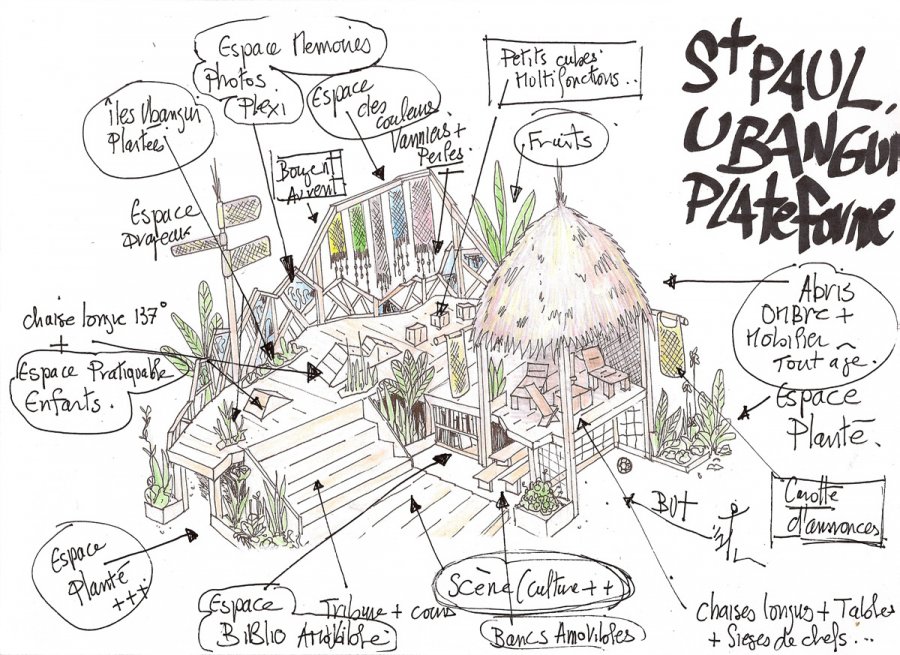 St PAUL.
UBANGUI
PlAteforme
Espace Memoires
Photos
Plexi
Petits cubes
Multifonctions..
Îles Ubangui
Plantées
Espace
des
couleurs
Vanniers +
Perles.
Fruits
Espace
Drapeaux
chaise longue 137°
+
Espace Pratiquable
Enfants.
Abris
OMBRE +
Mobilier
Tout âge.
Espace
Planté.
BUT
Carotte
d'annonces
Espace
Planté
+++
Espace
BiBlio
Tribune + cours
Amovible
Scène (Culture ++
Bancs Amovibles
Chaises longues + Tables
+ Sieges de chefs...